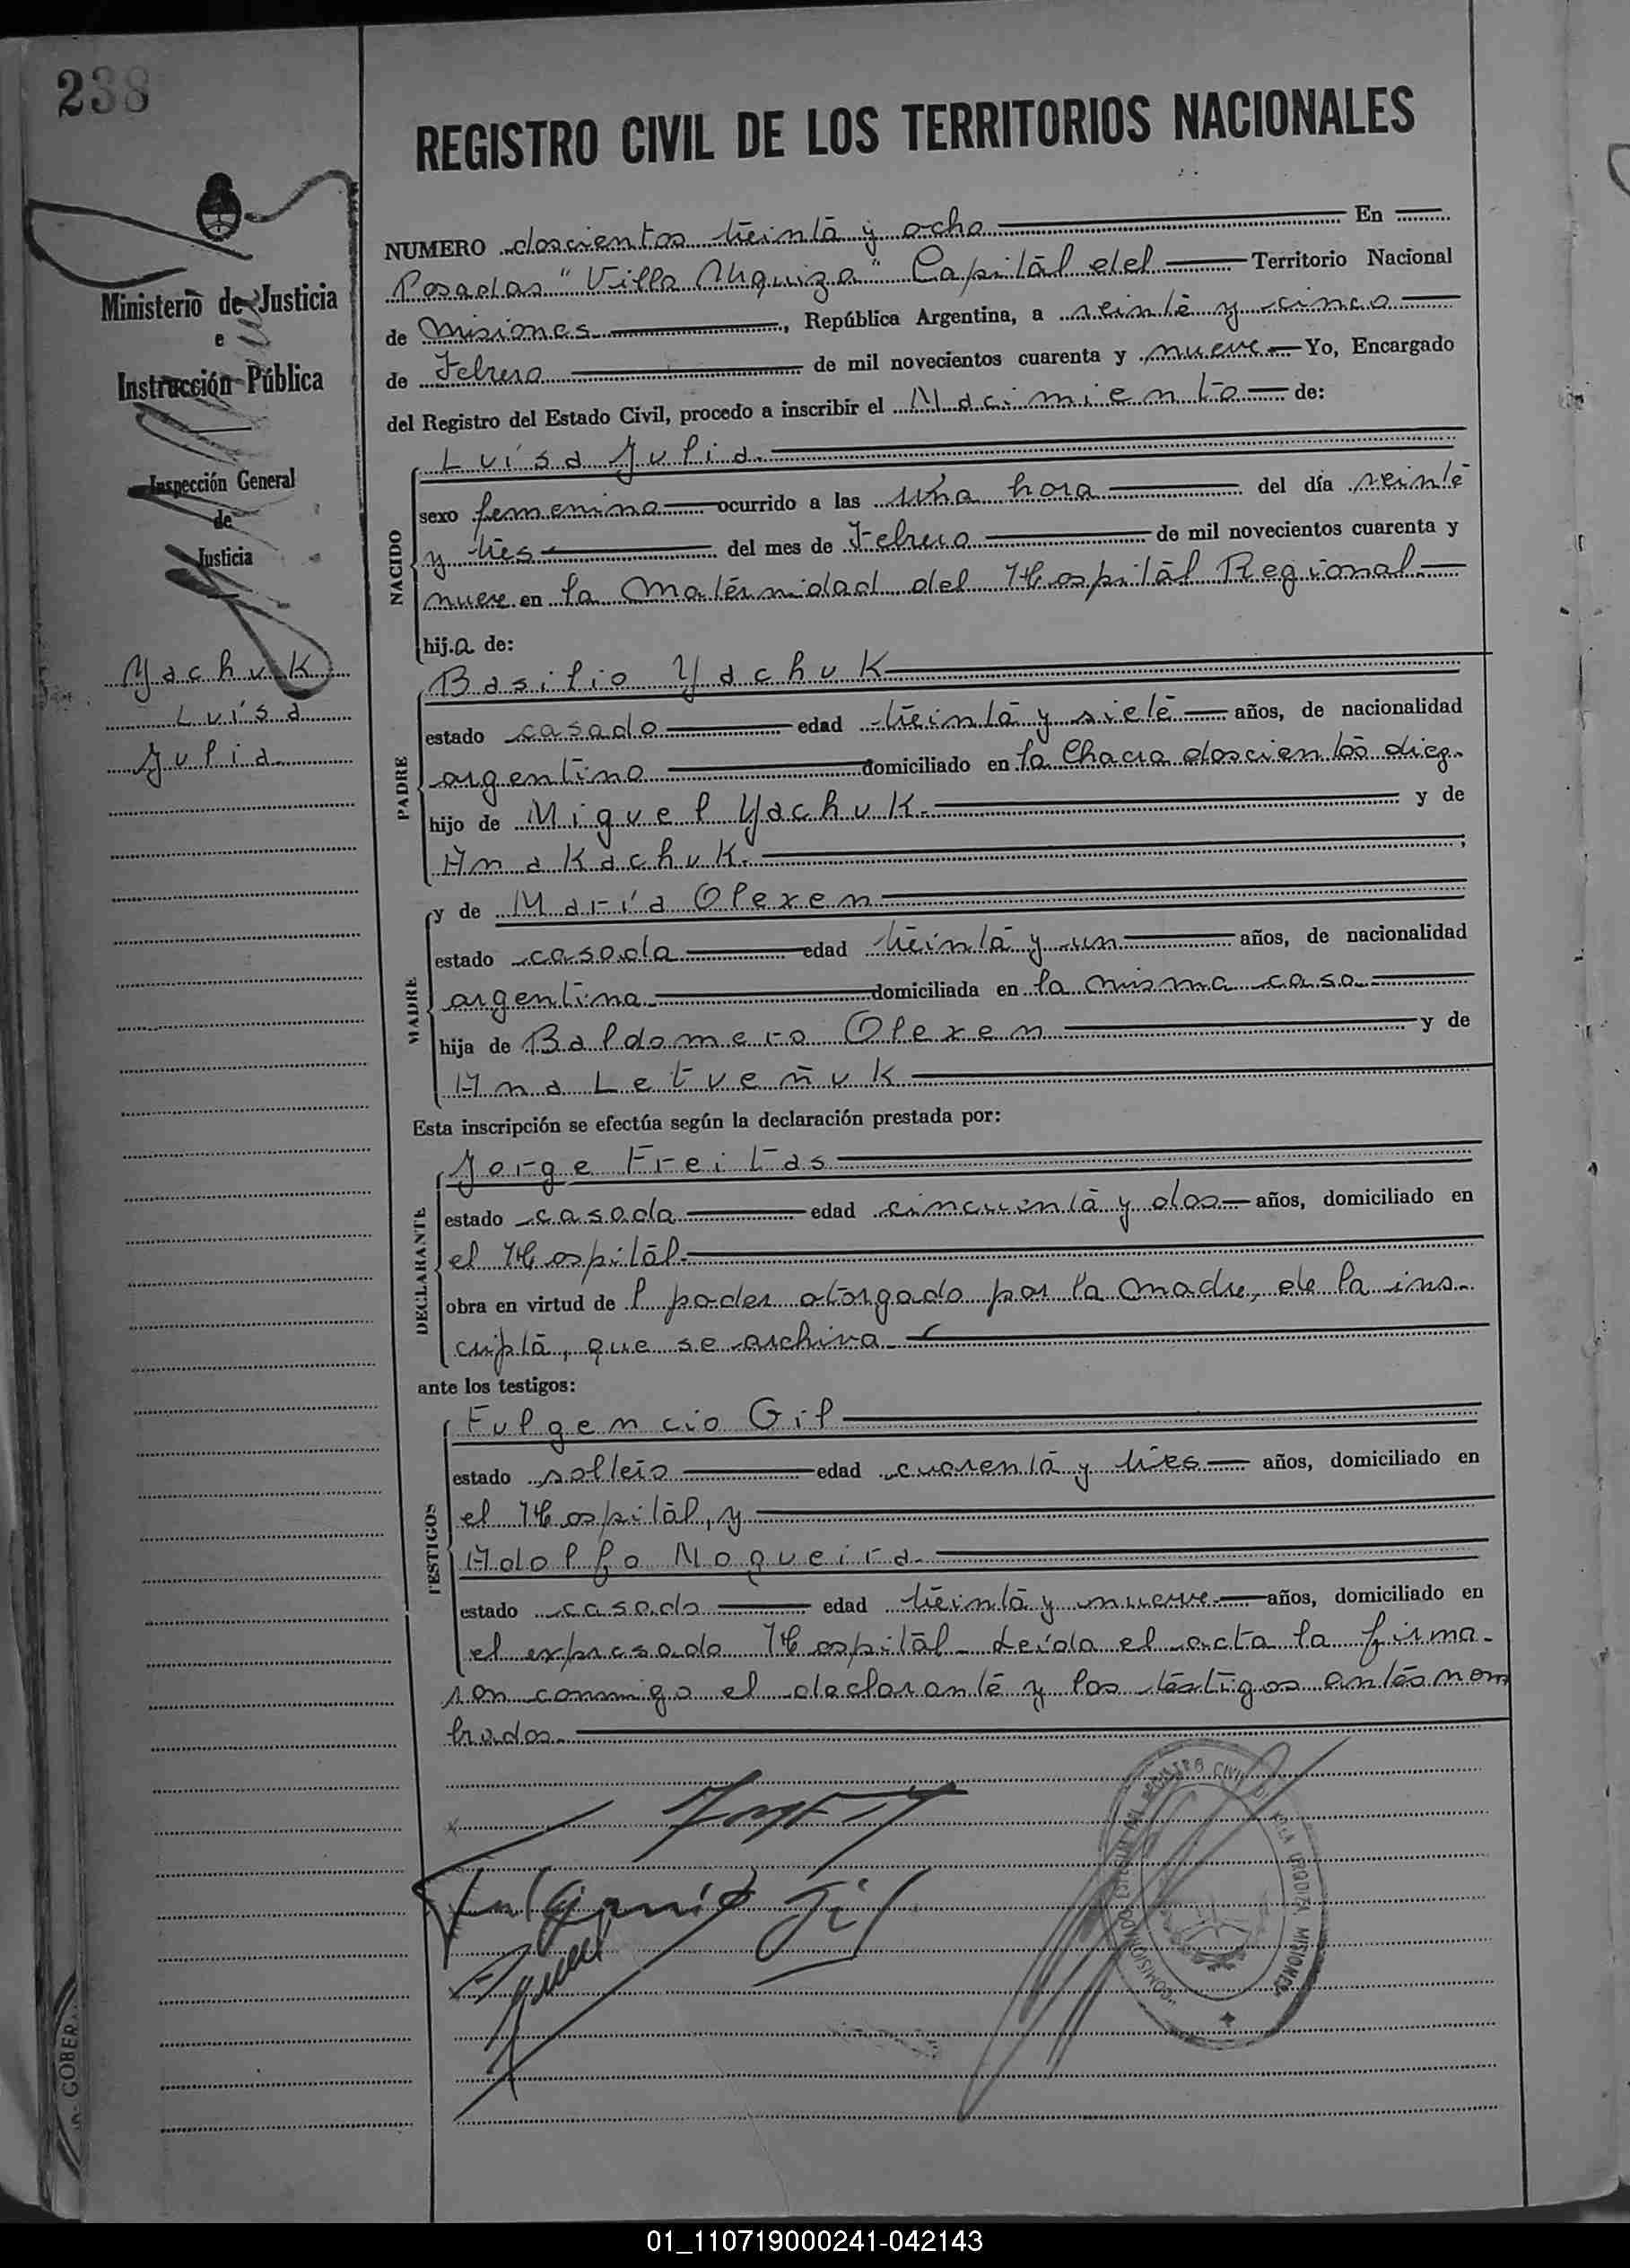 238
REGISTRO CIVIL DE LOS TERRITORIOS NACIONALES
Ministerio de Justicia
e
Instrucción Pública
Inspección General
de
Justicia
Yachuk
Luísa
Julia
NUMERO doscientos treinta y ocho En
Posadas "Villa Urquiza" Capital del Territorio Nacional
de Misiones, República Argentina, a veinte y cinco
de Febrero de mil novecientos cuarenta y nueve Yo, Encargado
del Registro del Estado Civil, procedo a inscribir el Nacimiento de:
NACIDO
Luísa Julia.
sexo femenino ocurrido a las una hora del día veinte
y tres del mes de Febrero de mil novecientos cuarenta y
nueve en la Maternidad del Hospital Regional.
hija de:
PADRE
Basilio Yachuk
estado casado edad treinta y siete años, de nacionalidad
argentino domiciliado en la Chacra doscientos diez.
hijo de Miguel Yachuk. y de
Ana Kachuk. ;
MADRE
y de María Olexen
estado casada edad treinta y un años, de nacionalidad
argentina domiciliada en la misma casa
hija de Baldomero Olexen y de
Ana Letveñuk
Esta inscripción se efectúa según la declaración prestada por:
DECLARANTE
Jorge Freitas
estado casado edad cincuenta y dos años, domiciliado en
el Hospital.
obra en virtud de l poder otorgado por la madre, de la ins-
cripta, que se archiva.
ante los testigos:
TESTIGOS
Fulgencio Gil
estado soltero edad cuarenta y tres años, domiciliado en
el Hospital, y
Adolfo Nogueira.
estado casado edad treinta y nueve años, domiciliado en
el expresado Hospital. Leída el acta la firma-
ron conmigo el declarante y los testigos antes nom
brados.
Fulgencio Gil
REGISTRO CIVIL VILLA URQUIZA MISIONES
GOBER
01_110719000241-042143